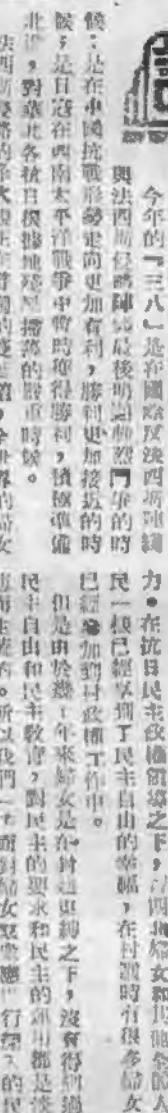 今年的「三八」是在國際反法西斯陣線
與法西斯侵略陣線最後明朗劇烈鬥爭的時
候；是在中國抗戰形勢走向更加有利，勝利更加接近的時
候；是日寇在西南太平洋戰爭中暫時取得勝利，積極準備
北進，對華北各抗日根據地殘暴掃蕩的嚴重時候。
法西斯侵略的 全世界的婦女
力。在抗日民主政權領導之下， 婦女和其他各階人
民一樣已經享到了民主自由的幸福，在村選時有很多婦女
已經參加到村政權工作中。
但是由於幾千年來婦女是在封建束縛之下，沒有得到過
民主自由和民主教育，對民主的要求和民主的運用都是淡
所以我們一方面對婦女要